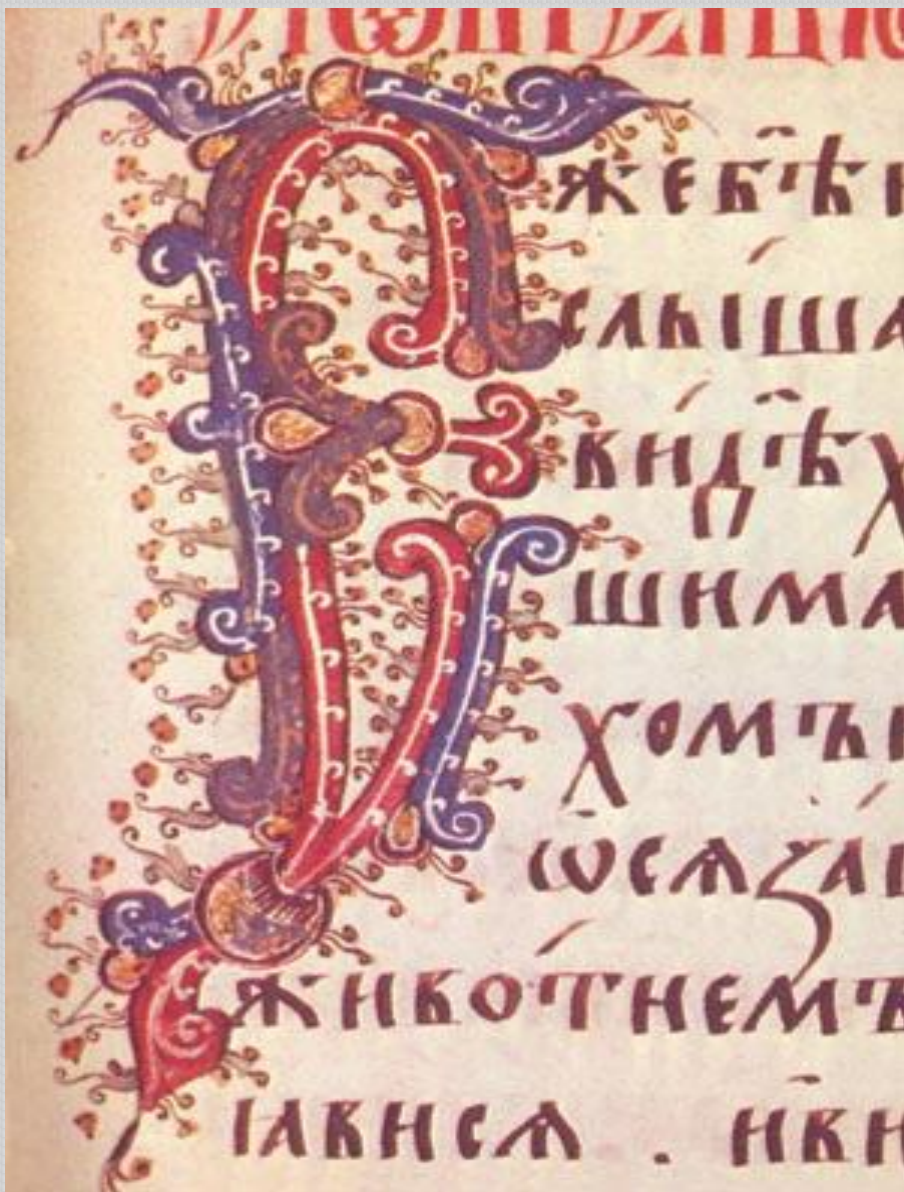 Ежебѣ
слꙑша
видѣх
шима
хомъ
ѡсѧза
животнемъ
ꙗвисѧ . иви